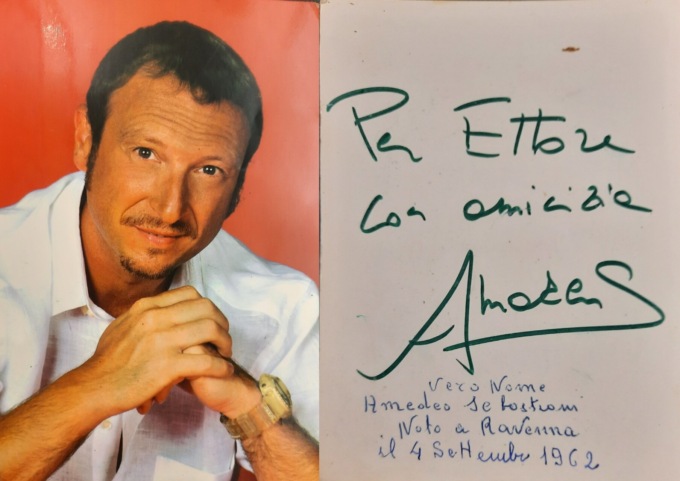 Per Ettore
con amicizia
Amadeus
Vero Nome
Amedeo Sebastiani
Nato a Ravenna
il 4 Settembre 1962